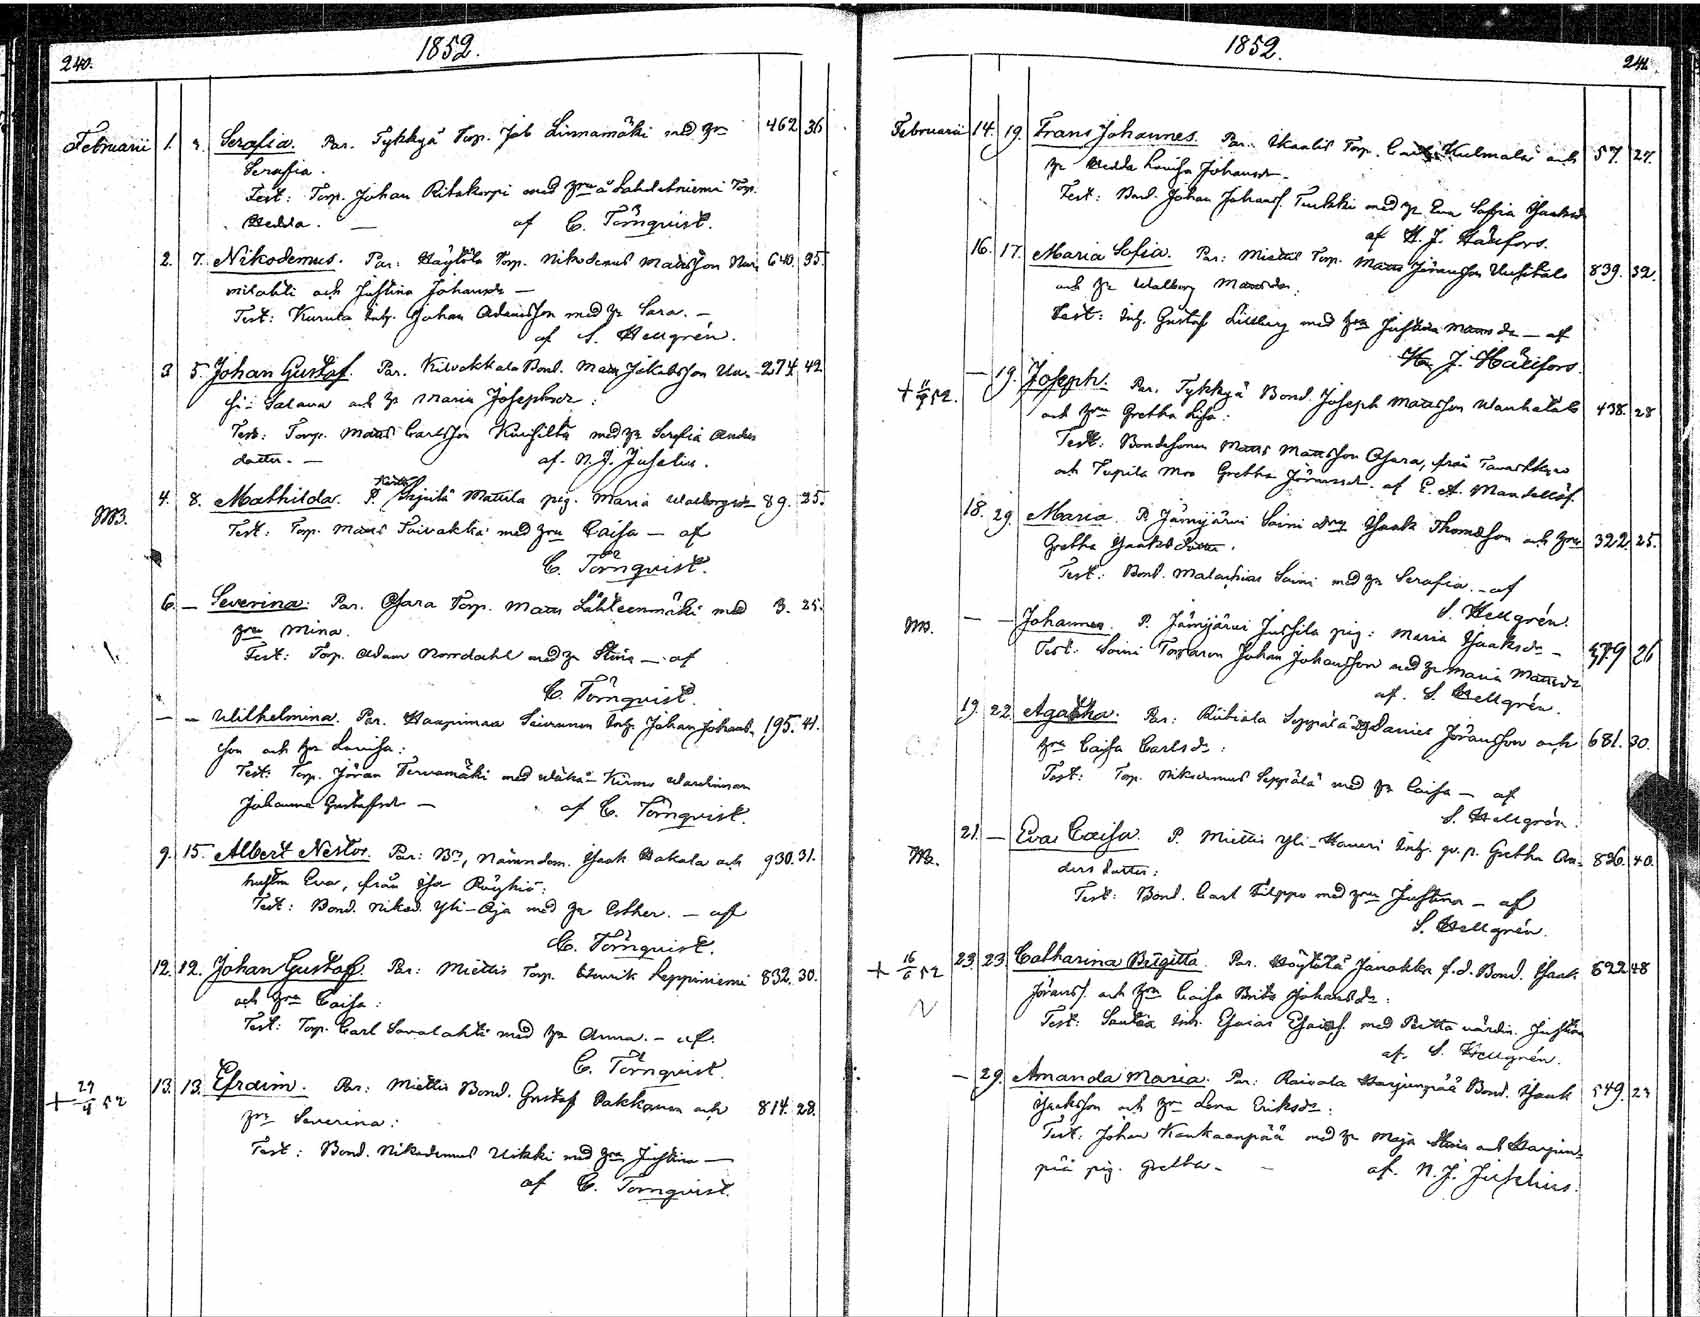 240.
1852.
Februarii 1. Serafia. Par. Tykkyä Torp. Job Linnamäki med hu 462 36
Serafia.
Test: Torp. Johan Ritakorpi med hru å Lahdebniemi Torp.
Hedda. — af C. Törnqvist.
2. 7. Nikodemus. Par: Höytölä Torp. Nikodemus Mattsson 640. 35.
och Justina Johansdr —
Test: Kurula Inh. Johan Adamsson med hu Sara. —
af S. Hellgrén.
3 5. Johan Gustaf. Par. Kilvakkala Bond. Matts Jakobsson Uu- 274 42
si-Salava och hu Maria Josephsdr:
Test: Torp. Matts Carlsson med hu Serafia Anders
dotter. — af. N. J. Juselius.
M3. 4. 8. Mathilda. P. Mattila pig. Maria Walborgsdr 89. 25.
Test: Torp. Matts Toivakka med hru Caisa — af
C. Törnqvist.
6. — Severina: Par. Osara Torp. Matts Lähteenmäki med 3. 25.
hru Mina.
Test: Torp. Adam Norrdahl med hu Stina — af
C. Törnqvist.
— — Wilhelmina. Par. Haapimaa Inh. Johan Johans- 195. 41.
son och hu Lovisa:
Test: Torp. Jöran Tervamäki med
Johanna Gustafsdr — af C. Törnqvist.
9. 15. Albert Nestor. Par: Nämndem. Isaak Hakala och 930. 31.
hustru Eva, från Röyhiö:
Test: Bond. Nikod. Yli-Äijä med hu Esther. — af
C. Törnqvist.
12. 12. Johan Gustaf. Par: Miettis Torp. Henrik Leppiniemi 832. 30.
och hru Caisa:
Test: Torp. Carl Savalahti med hu Anna. — af.
C. Törnqvist.
+ 29/4 52 13. 13. Efraim. Par: Miettis Bond. Gustaf Pakkanen och 814. 28.
hru Severina:
Test: Bond. Nikodemus Uikki med hru Justina —
af C. Törnqvist.
1852.
241.
Februarii 14. 19. Frans Johannes. Par. Ikaalis Torp. Kulmala och 57. 27.
hu Hedda Lovisa Johansdr —
Test: Bond. Johan Johanss. Turkki med hu Eva Sofia Isaksdr
af H. J. Hällfors.
16. 17. Maria Sofia. Par: Miettis Torp. Matts Jöransson 839. 32.
och hu Walborg Mattsdr:
Test: Inh. Gustaf Lillberg med hru Justina Mattsdr — af
H. J. Hällfors.
52. — 19. Joseph. Par. Tykkyä Bond. Joseph Mattsson Wanhatalo 438. 28
och hru Gretha Lisa:
Test: Bondesonen Matts Mattsson Osara, från Tavastkyro
och Tupila Moo Gretha Jöransdr. af E. A. Mandellöf.
18. 29. Maria. P. Jämijärvi Soini Isaak Thomasson och hru 322. 25.
Gretha Isaksdotter.
Test: Bond. Malachias Soini med hu Serafia. — af
S. Hellgrén.
— — Johannes. P. Jämijärvi Jussila pig: Maria Isaaksdr — 379 26
Test: Soini Torparen Johan Johansson med hu Maria Mattsdr
af. S. Hellgrén.
19. 22. Agatha. Par: Riitiala Seppälä Daniel Jöransson och 681. 30.
hru Caisa Carlsdr:
Test: Torp. Nikodemus Seppälä med hu Caisa — af
S. Hellgrén.
21. — Eva Caisa. P. Miettis Yli-Kaveri Inh. qv. p. Gretha An- 836. 40.
dersdotter:
Test: Bond. Carl Filppo med hru Justina — af
S. Hellgrén.
+ 16/6 52 23. 23. Catharina Brigitta. Par. Höytölä Janakka f.d. Bond. Isaak 622 48
Jöranss. och hru Caisa Brita Johansdr:
Test: Inh. Esaias Esaiass. med Pertta värdin. Justina
af. S. Hellgrén.
— 29. Amanda Maria. Par: Raivala Harjunpää Bond. Isaak 549. 23
Isaksson och hru Lena Eriksdr:
Test: Johan Kankaanpää med hu Maja Stina och Harjun-
pää pig. Gretha — af. N. J. Juselius.